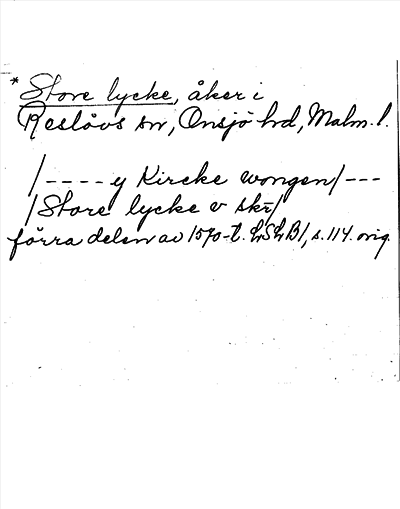 * Store lycke, åker i
Reslövs sn, Onsjö hd, Malm. l.
/---- y Kircke wongen/---
/Store lycke v skr/
förra delen av 1570-t. LSLB1, s. 114. orig.